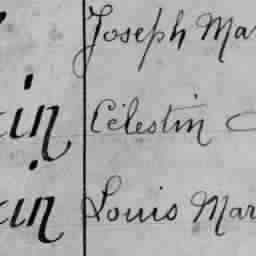 Joseph Mar
in Célestin
in Louis Mar